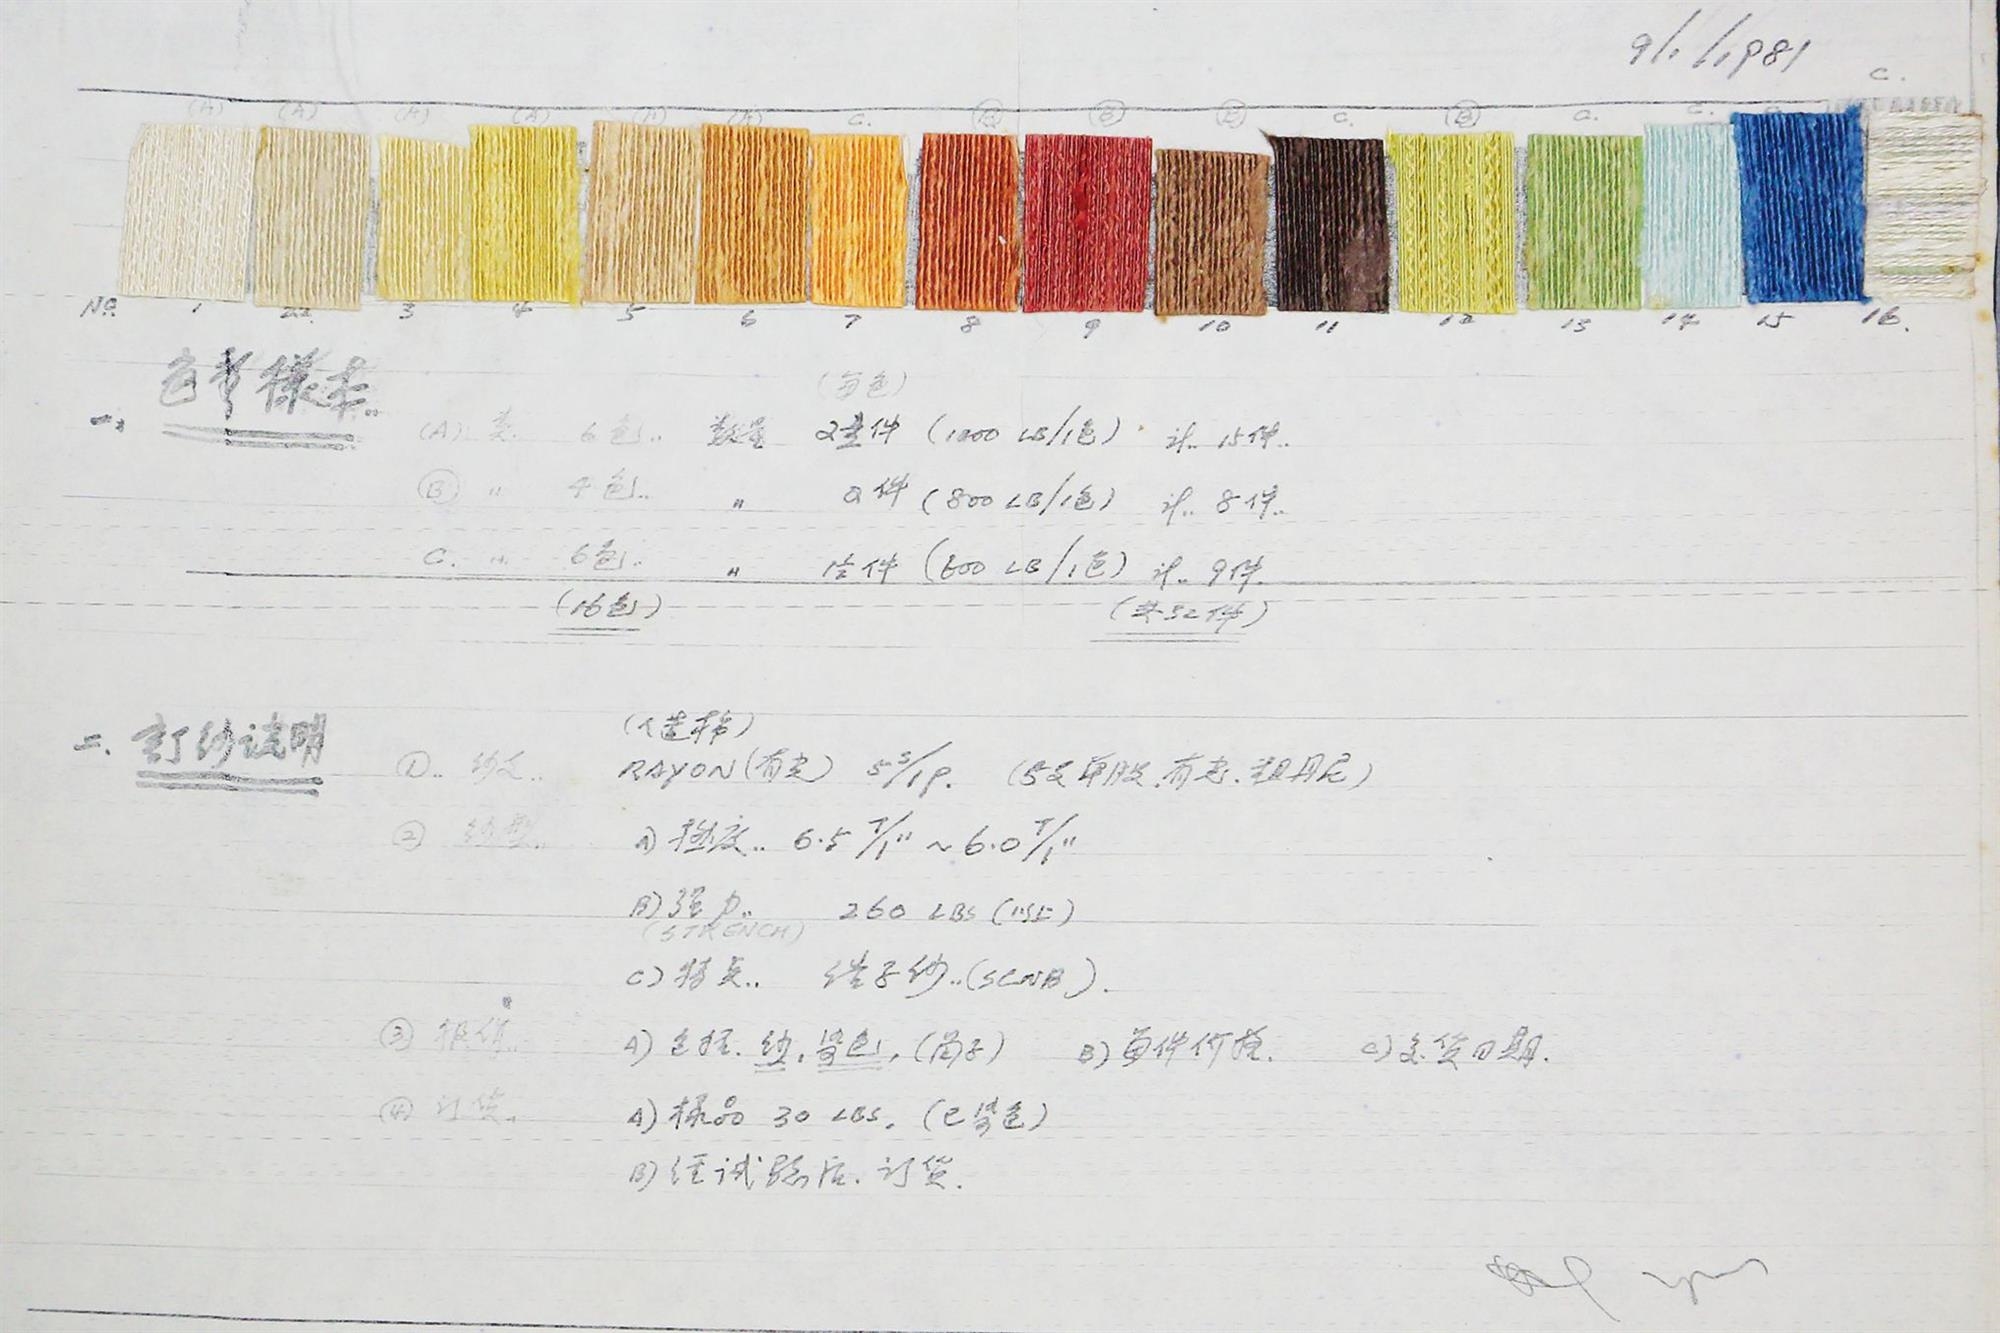 9/1/1981
C.
(A) (A) (A) (A) (A) (A) C. Ⓑ Ⓑ Ⓑ C. Ⓑ C. C. C.
No. 1 2 3 4 5 6 7 8 9 10 11 12 13 14 15 16.
一、 色号样本..
(每色)
(A) 类 6色.. 数量 2半件 (1000 LB/1色) 计.. 15件..
Ⓑ 〃 4色.. 〃 2件 (800 LB/1色) 计.. 8件..
C. 〃 6色.. 〃 1半件 (600 LB/1色) 计.. 9件.
(16色) (共32件)
二. 訂纱说明
(人造棉)
①.. 纱支.. RAYON (有光) 5S/1P. (5支单股.有光.粗丹尼)
② 纱型.. A) 捻度.. 6.5 T/1" ~ 6.0 T/1"
B) 强力.. 260 LBS
(STRENCH)
C) 特点.. 结子纱.. (SLNB).
③ 报价.. A) 包括.纱.染色.(筒子) B) 每件价格. C) 交货日期.
④ 订货. A) 样品 30 LBS. (已染色)
B) 经试验后.订货.